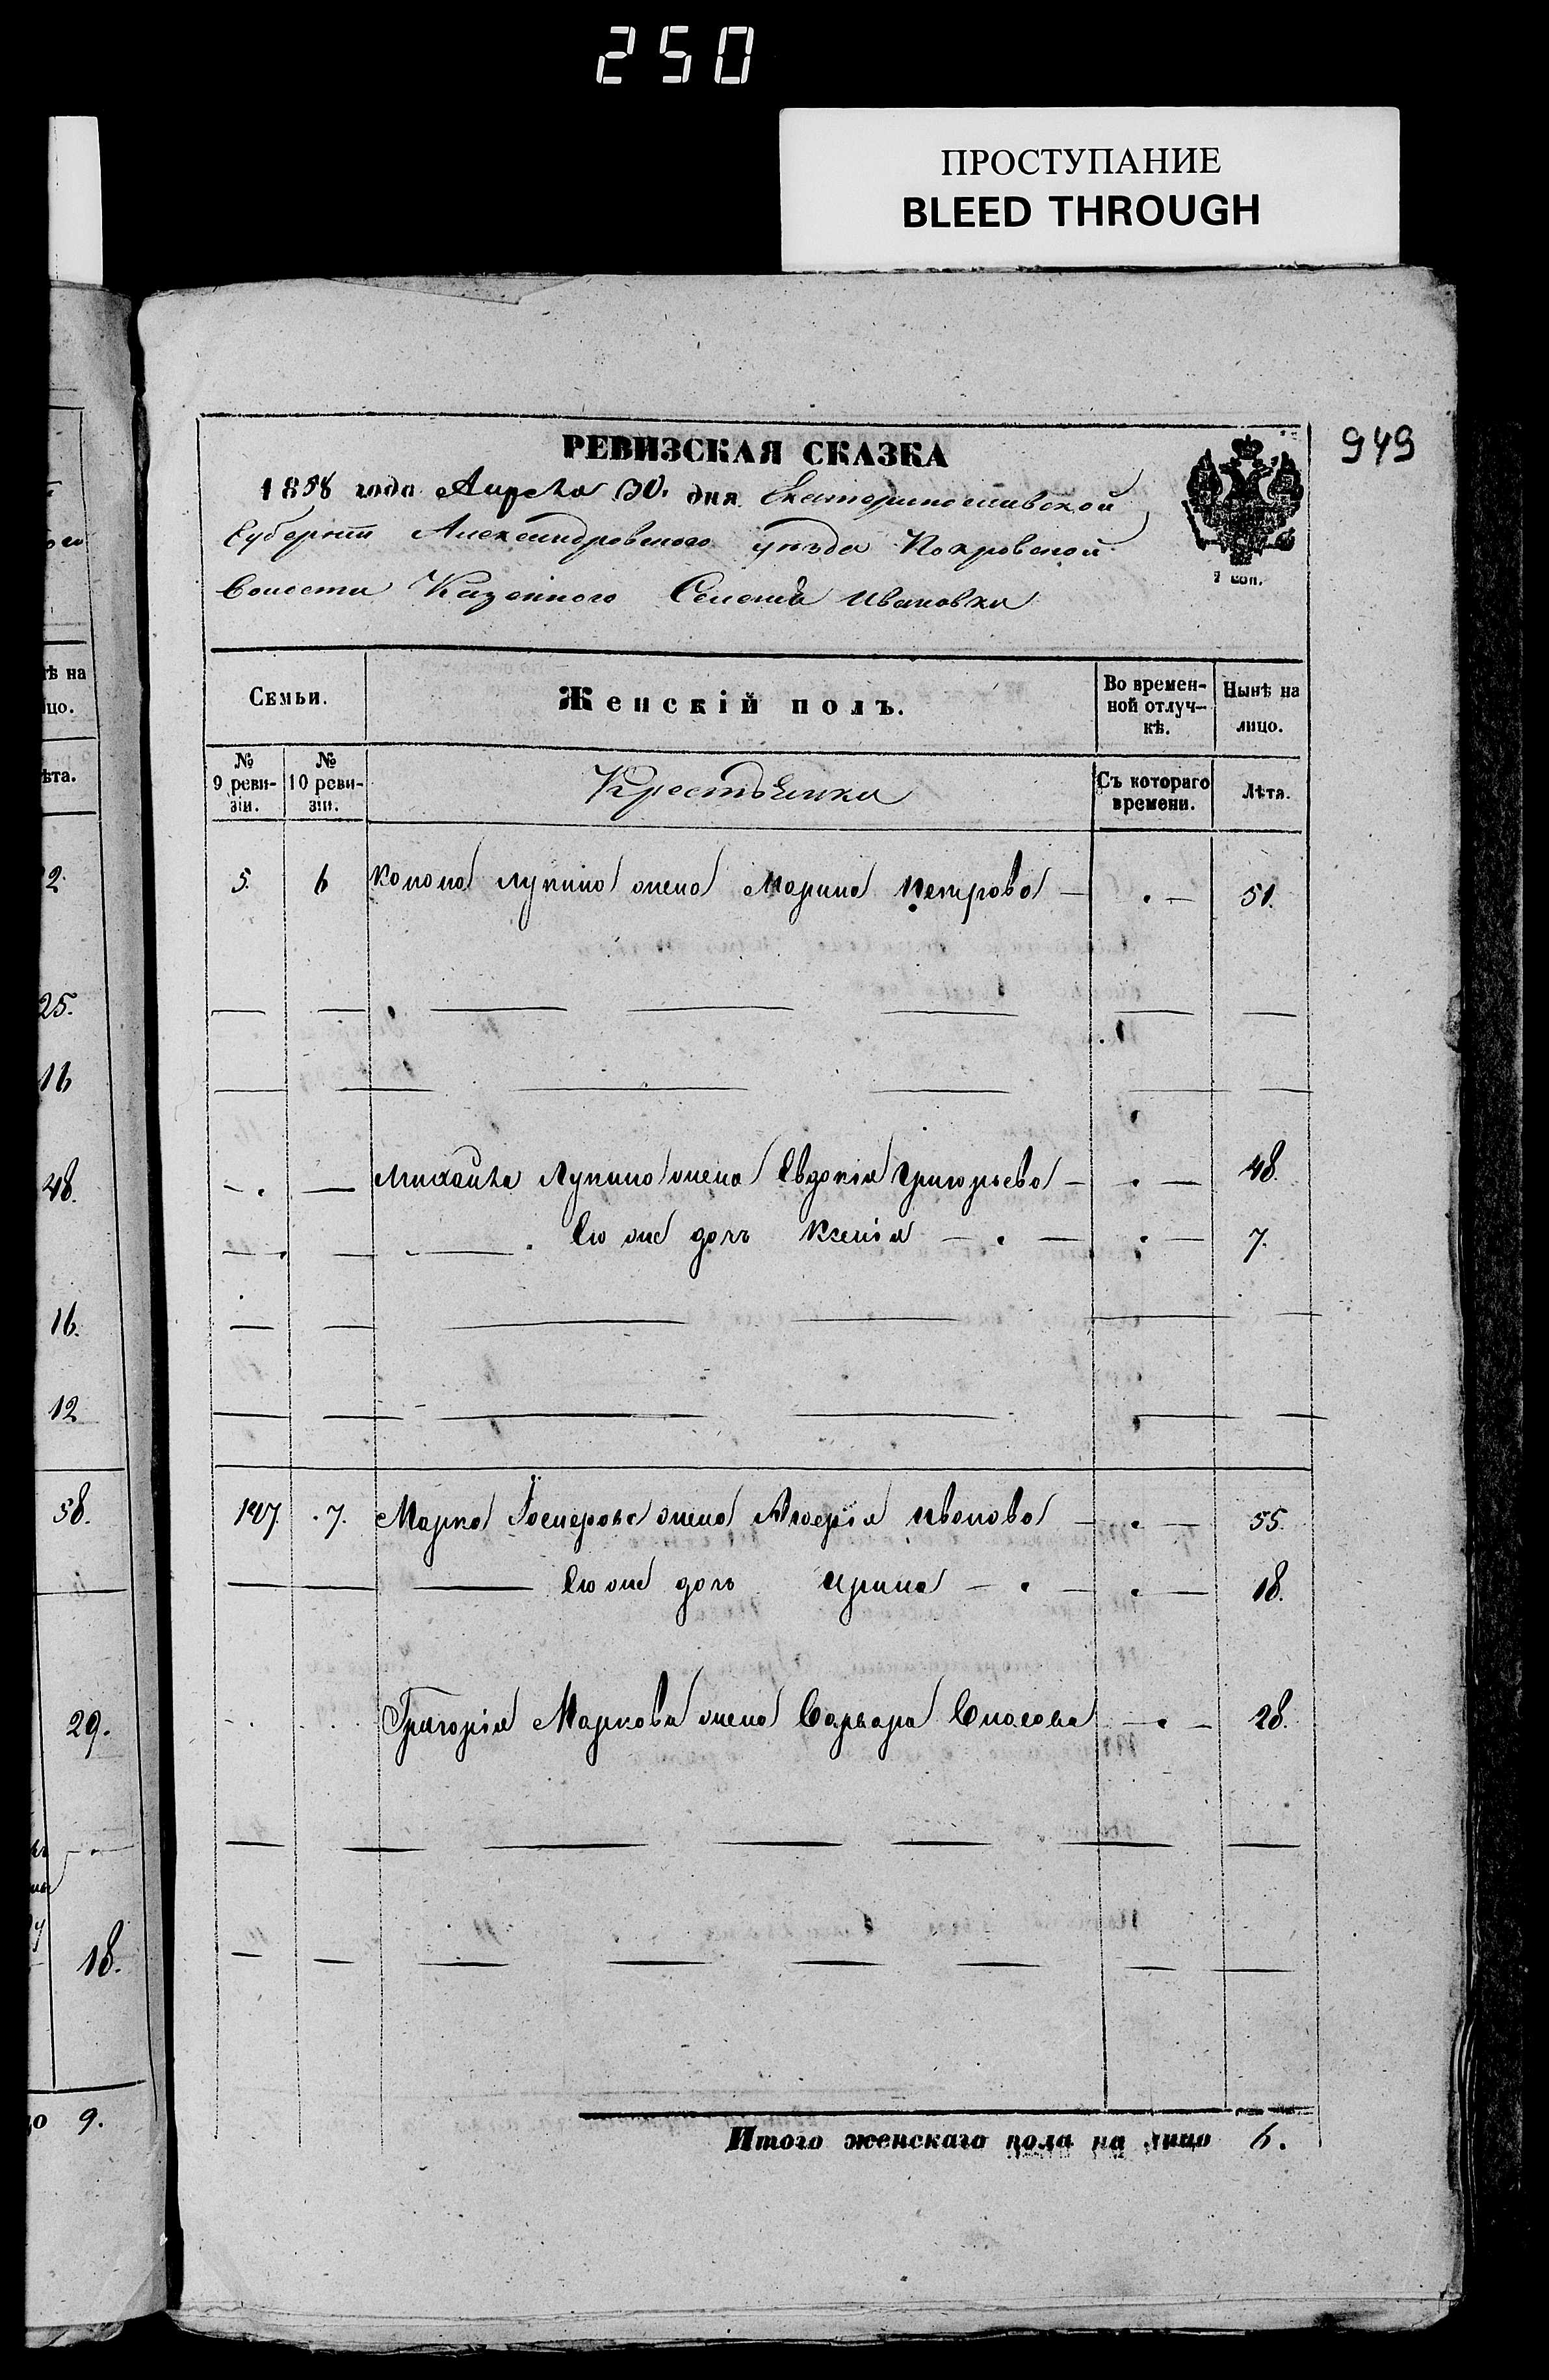 250
ПРОСТУПАНИЕ
BLEED THROUGH
949
РЕВИЗСКАЯ СКАЗКА
1858 года Апреля 30. дня Екатеринославской
Губернии Александровского уезда Покровской
Волости Казенного Селения Ивановки
7 коп.
Семьи. Женскій полъ. Во времен- Нынѣ на
ной отлуч- лицо.
кѣ.
№ №
9 реви- 10 реви- Крестьянка Съ котораго Лѣта.
зіи. зіи. времени.
5. 6 Лукина жена Марина Петрова 51.
Михайла Лукина жена Евдокія Григорьева 48.
Ею же дочь Ксенія 7.
147. 7. Марка жена Ивонова 55.
Ею же дочь Ирина 18.
Григорія Маркова жена Варвара 28.
Итого женскаго пола на лицо 6.
ѣ на
цо.
ѣта.
2.
25.
16
48.
16.
12
58.
29.
18.
о 9.